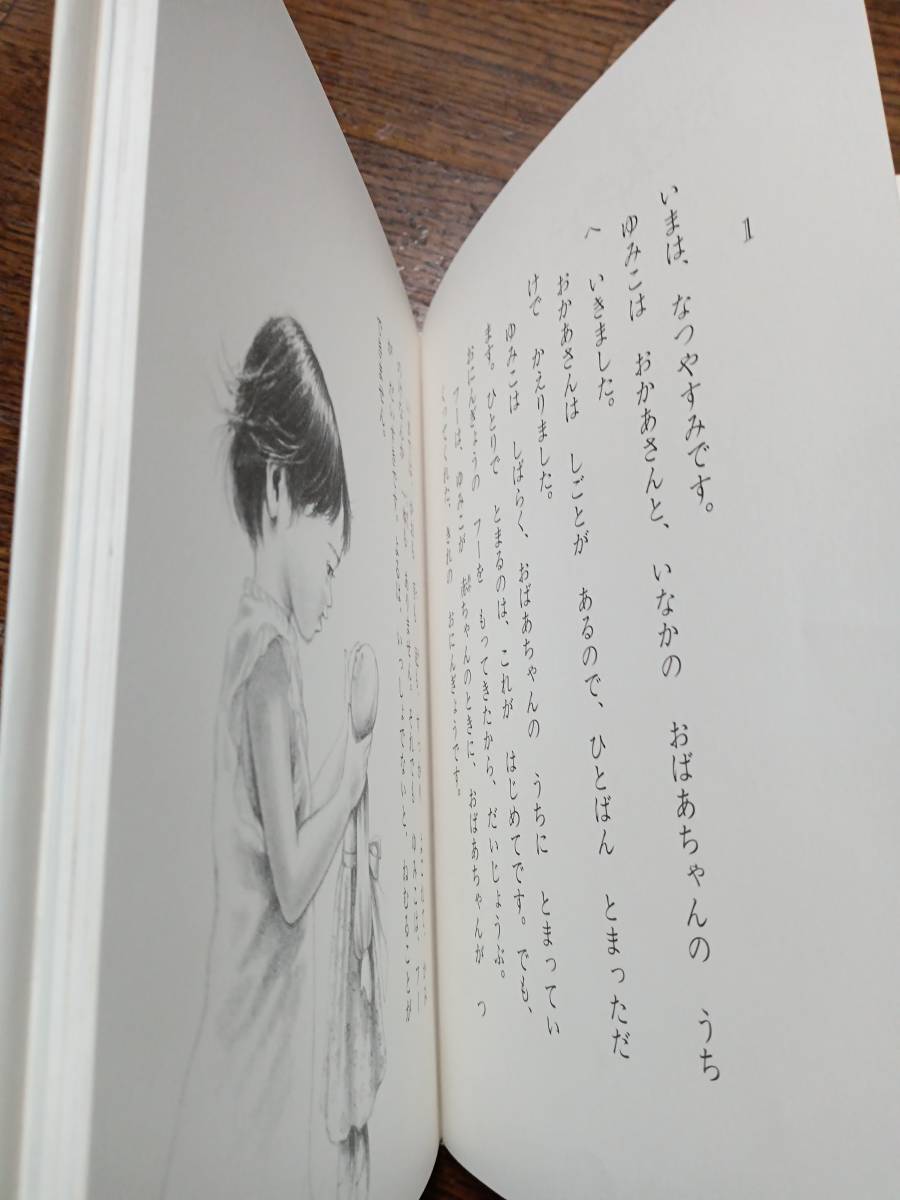 1
いまは、なつやすみです。
ゆみこは　おかあさんと、いなかの　おばあちゃんの　うち
へ　いきました。
おかあさんは　しごとが　あるので、ひとばん　とまっただ
けで　かえりました。
ゆみこは　しばらく、おばあちゃんの　うちに　とまってい
ます。ひとりで　とまるのは、これが　はじめてです。でも、
おにんぎょうの　フーを　もってきたから、だいじょうぶ。
フーは、ゆみこが　赤ちゃんのときに、おばあちゃんが　つ
くってくれた、きれの　おにんぎょうです。
いっしょでないと、ねむることが